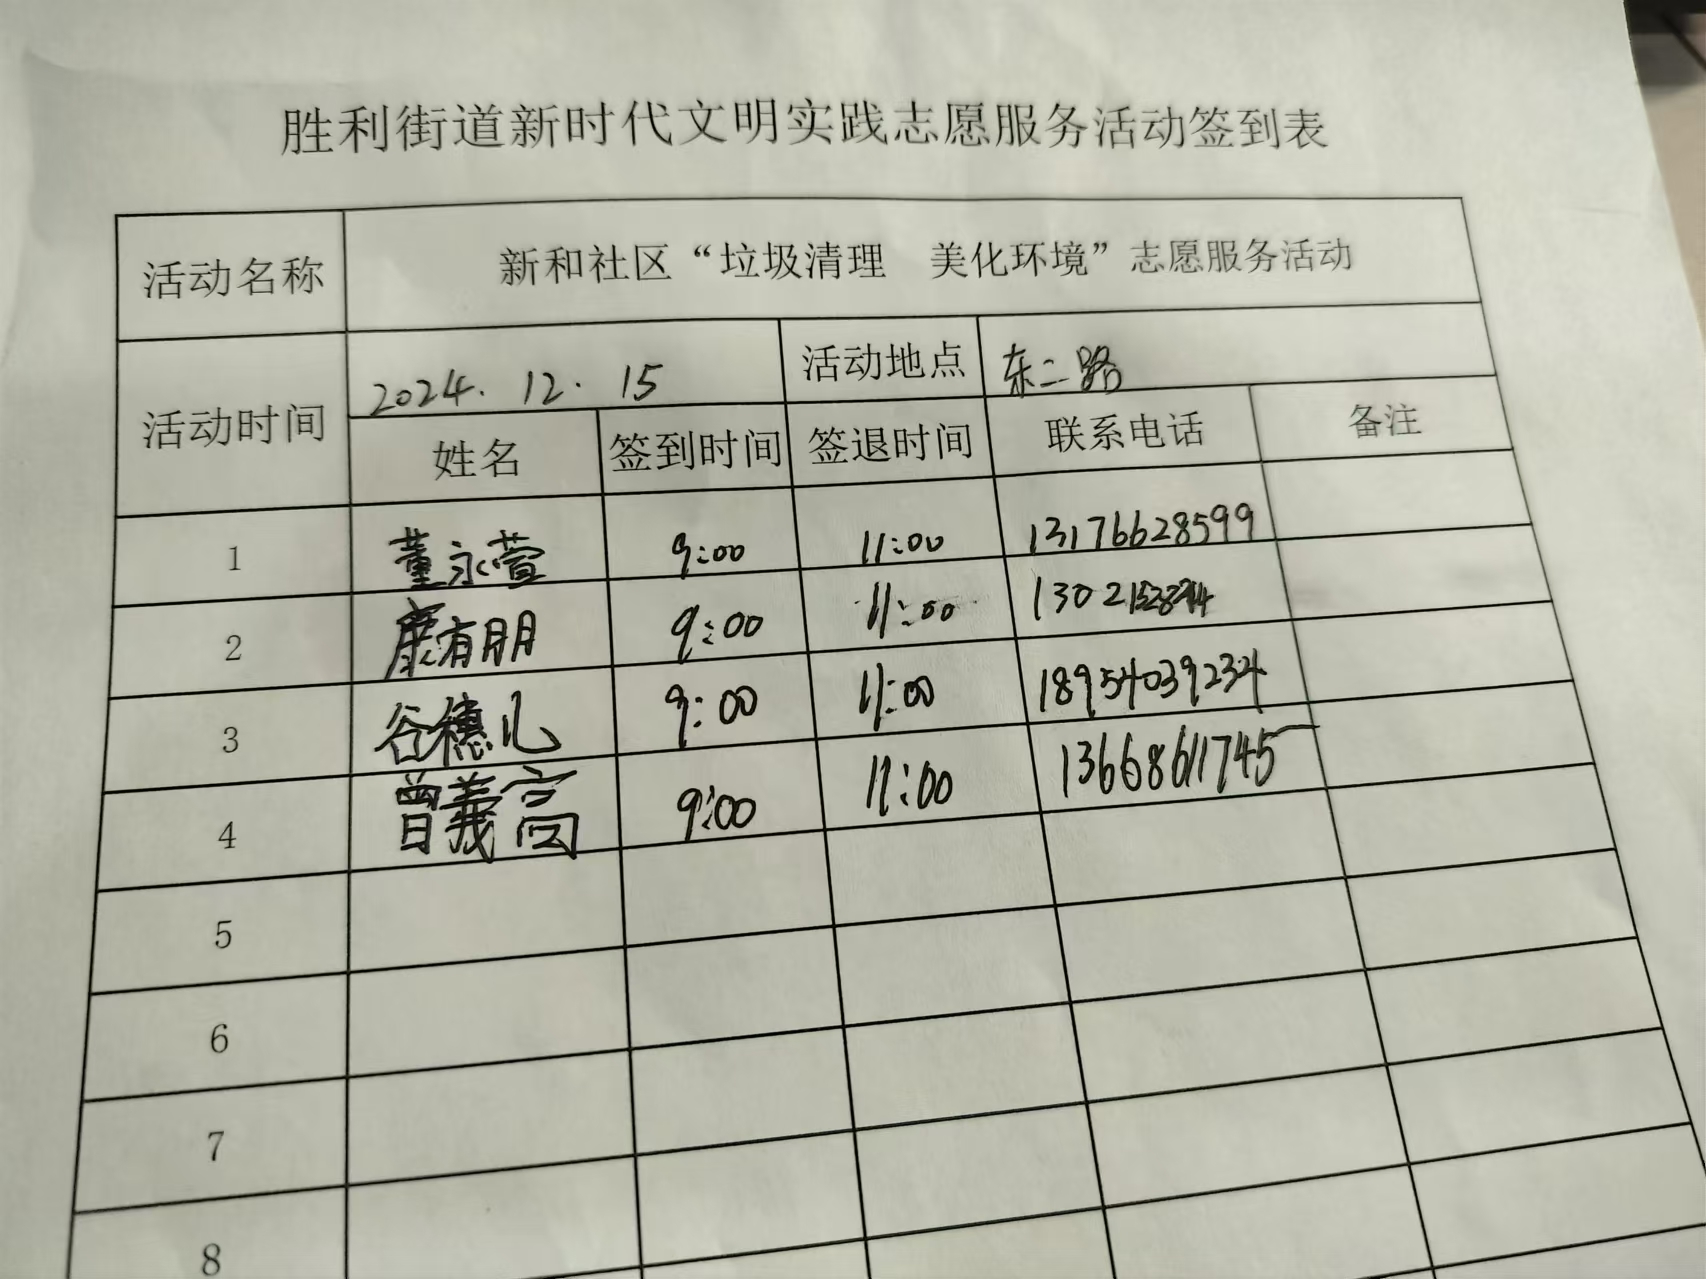 胜利街道新时代文明实践志愿服务活动签到表
活动名称 新和社区“垃圾清理 美化环境”志愿服务活动
活动时间 2024.12.15 活动地点 东二路
姓名 签到时间 签退时间 联系电话 备注
1 董永萱 9:00 11:00 13176628599
2 康有朋 9:00 11:00
3 谷穗儿 9:00 11:00 18954039234
4 曾義高 9:00 11:00 13668611745
5
6
7
8